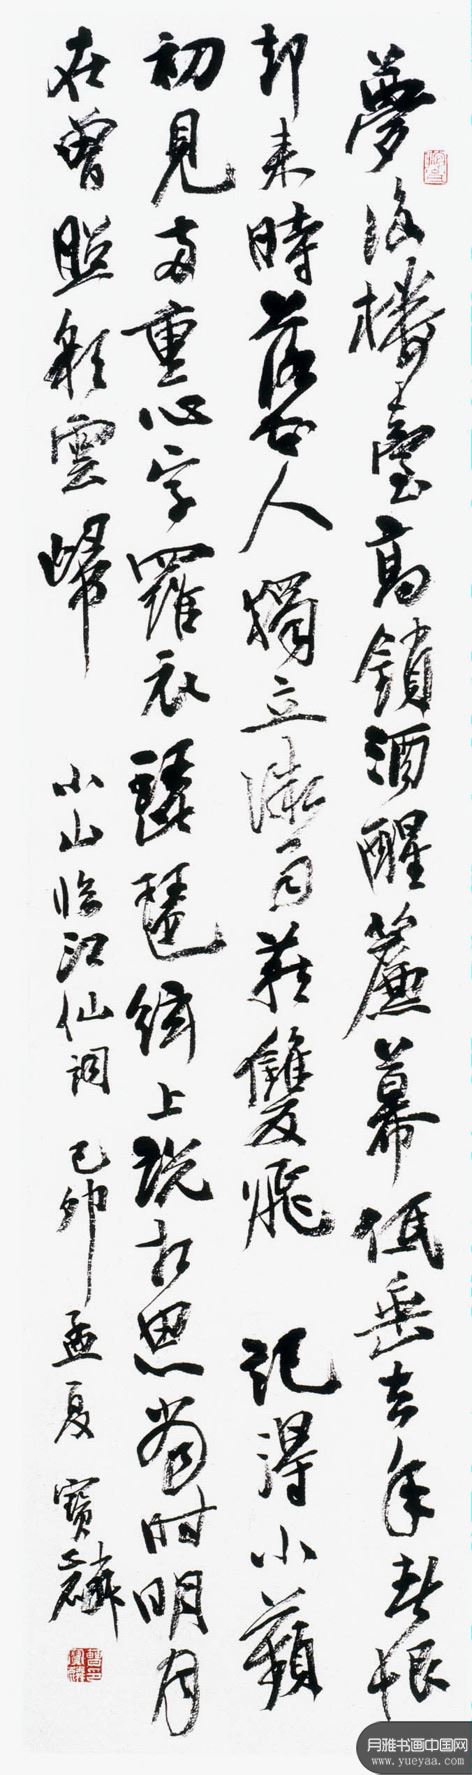 夢後樓臺高鎖酒醒簾幕低垂去年春恨
却來時落花人獨立微雨燕雙飛 記得小蘋
初見兩重心字羅衣琵琶絃上説相思當时明月
在曾照彩雲歸 小山臨江仙詞 己卯孟夏 寶麟
月雅书画中国网
www.yueyaa.com